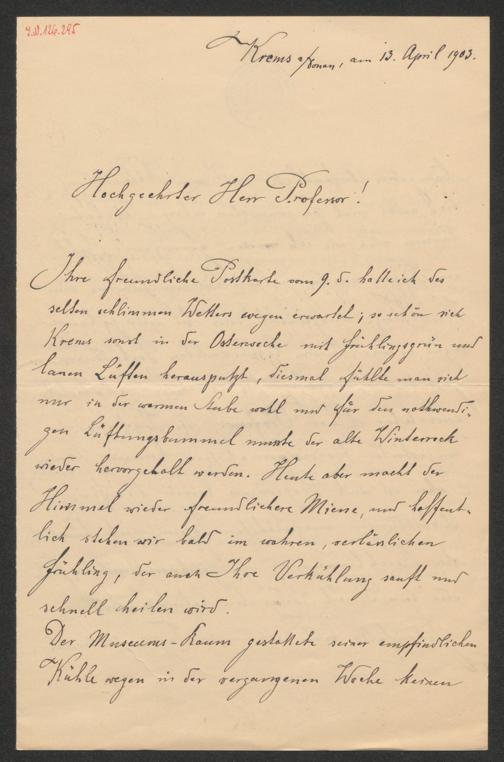 I.N. 126.295
Krems a/Donau, am 13. April 1903.
Hochgeehrter Herr Professor!
Ihre freundliche Postkarte vom 9. d. hatte ich des
selten schlimmen Wetters wegen erwartet; so schön sich
Krems sonst in der Osterwoche mit Frühlingsgrün und
lauen Lüften herausputzt, diesmal fühlte man sich
nur in der warmen Stube wohl und für den nothwendi-
gen Lüftungsbummel musste der alte Winterrock
wieder hervorgeholt werden. Heute aber macht der
Himmel wieder freundlichere Miene, und hoffent-
lich stehen wir bald im wahren, verlässlichen
Frühling, der auch Ihre Verkühlung sanft und
schnell heilen wird.
Der Museums-Raum gestattete seiner empfindlichen
Kühle wegen in der vergangenen Woche keinen